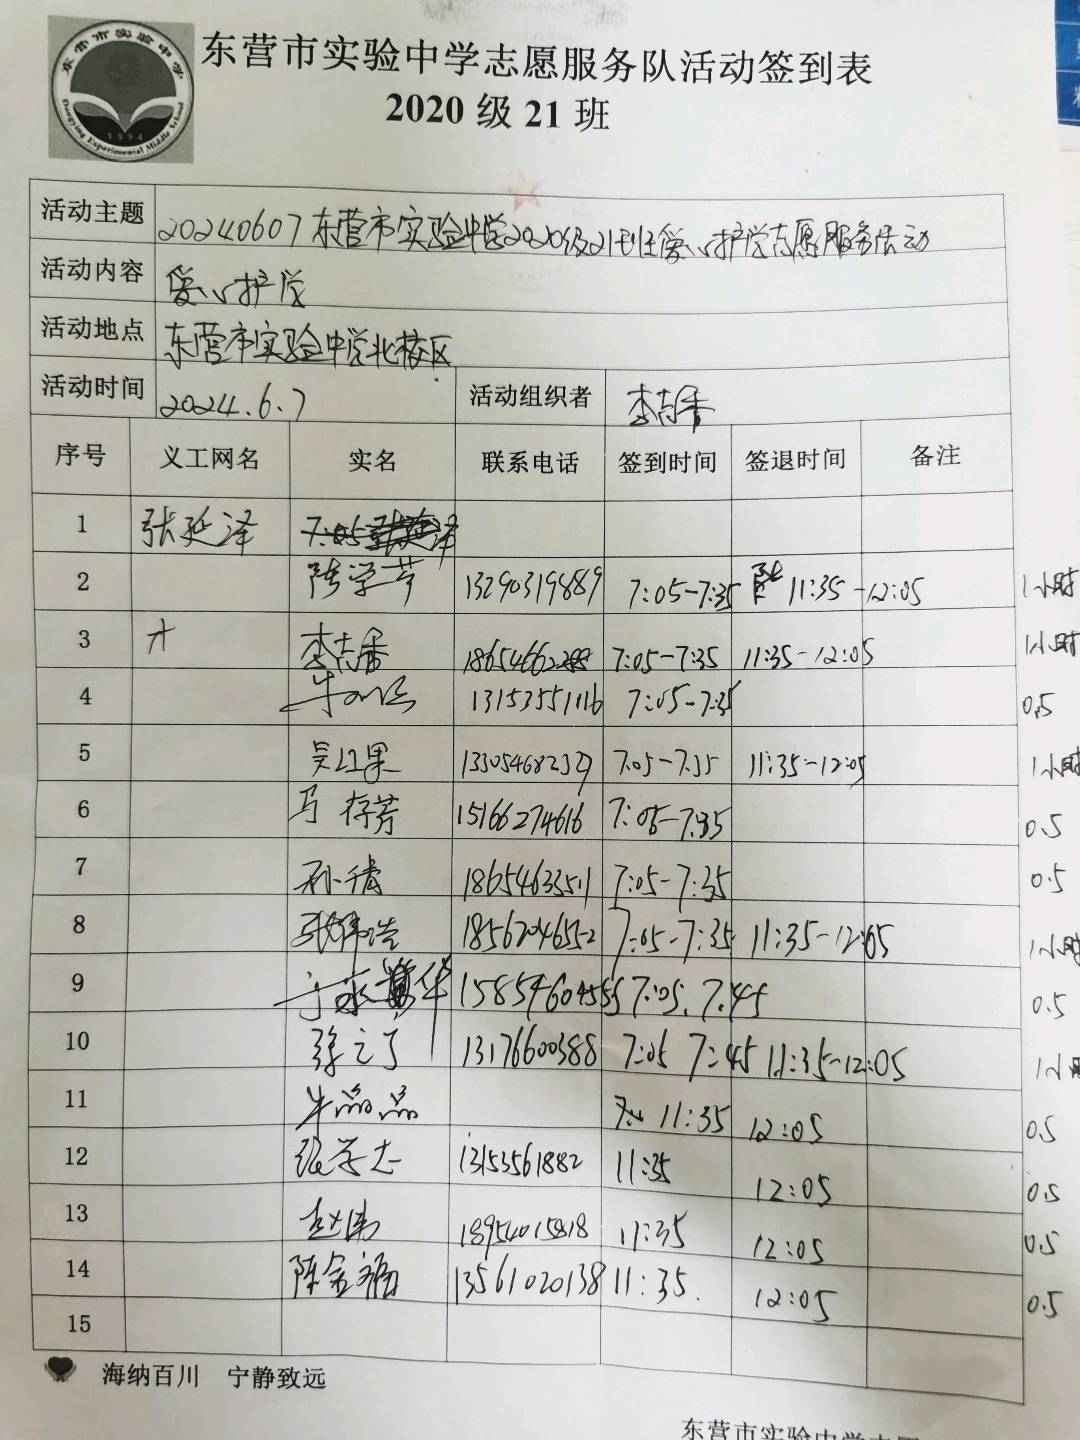 东营市实验中学
Dongying Experimental Middle School
1994
东营市实验中学志愿服务队活动签到表
2020 级 21 班
活动主题 20240607东营市实验中学2020级21班爱心护学志愿服务活动
活动内容 爱心护学
活动地点 东营市实验中学北校区
活动时间 2024.6.7 活动组织者 李志香
序号 义工网名 实名 联系电话 签到时间 签退时间 备注
1 张延泽 7:05
2 陈学芹 13290319889 7:05-7:35 11:35-12:05 1小时
3 李志香 18654662 7:05-7:35 11:35-12:05 1小时
4 牛 13153551116 7:05-7:35 0.5
5 吴红果 13305468237 7:05-7:35 11:35-12:05 1小时
6 马存芳 15166274616 7:05-7:35 0.5
7 孙倩 18654633511 7:05-7:35 0.5
8 张伟浩 18562046552 7:05-7:35 11:35-12:05 1小时
9 于永华 15854604555 7:05. 7:45 0.5
10 徐立了 13176600388 7:05 7:45 11:35-12:05 1小时
11 牛晶晶 11:35 12:05 0.5
12 张学志 13153561882 11:35 12:05 0.5
13 赵伟 18954015818 11:35 12:05 0.5
14 陈金福 13561020138 11:35. 12:05 0.5
15
海纳百川 宁静致远
东营市实验中学志愿